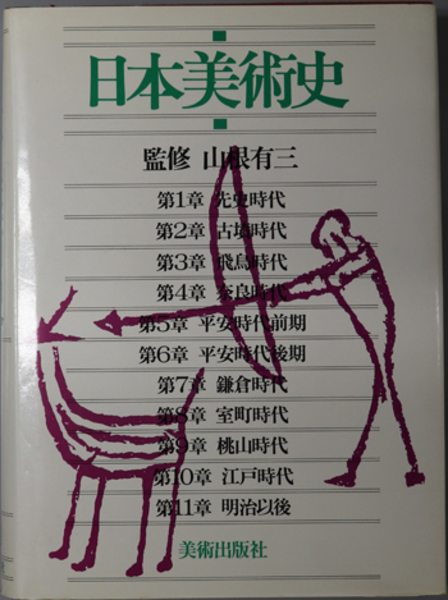 日本美術史
監修 山根有三
第1章 先史時代
第2章 古墳時代
第3章 飛鳥時代
第4章 奈良時代
第5章 平安時代前期
第6章 平安時代後期
第7章 鎌倉時代
第8章 室町時代
第9章 桃山時代
第10章 江戸時代
第11章 明治以後
美術出版社